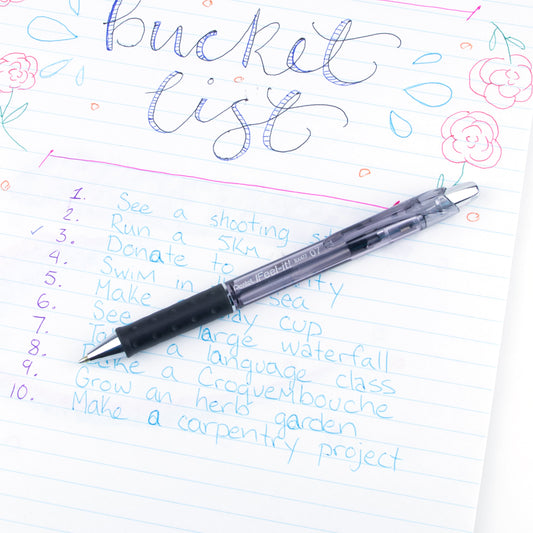 Bucket
List
1. See a shooting
2. Run a 5KM
✓ 3. Donate to
4. Swim in sea
5. Make cup
6. See large waterfall
7. a language class
8. a Croquembouche
9. Grow an herb garden
10. Make a carpentry project
Pentel iFeel-it! 07